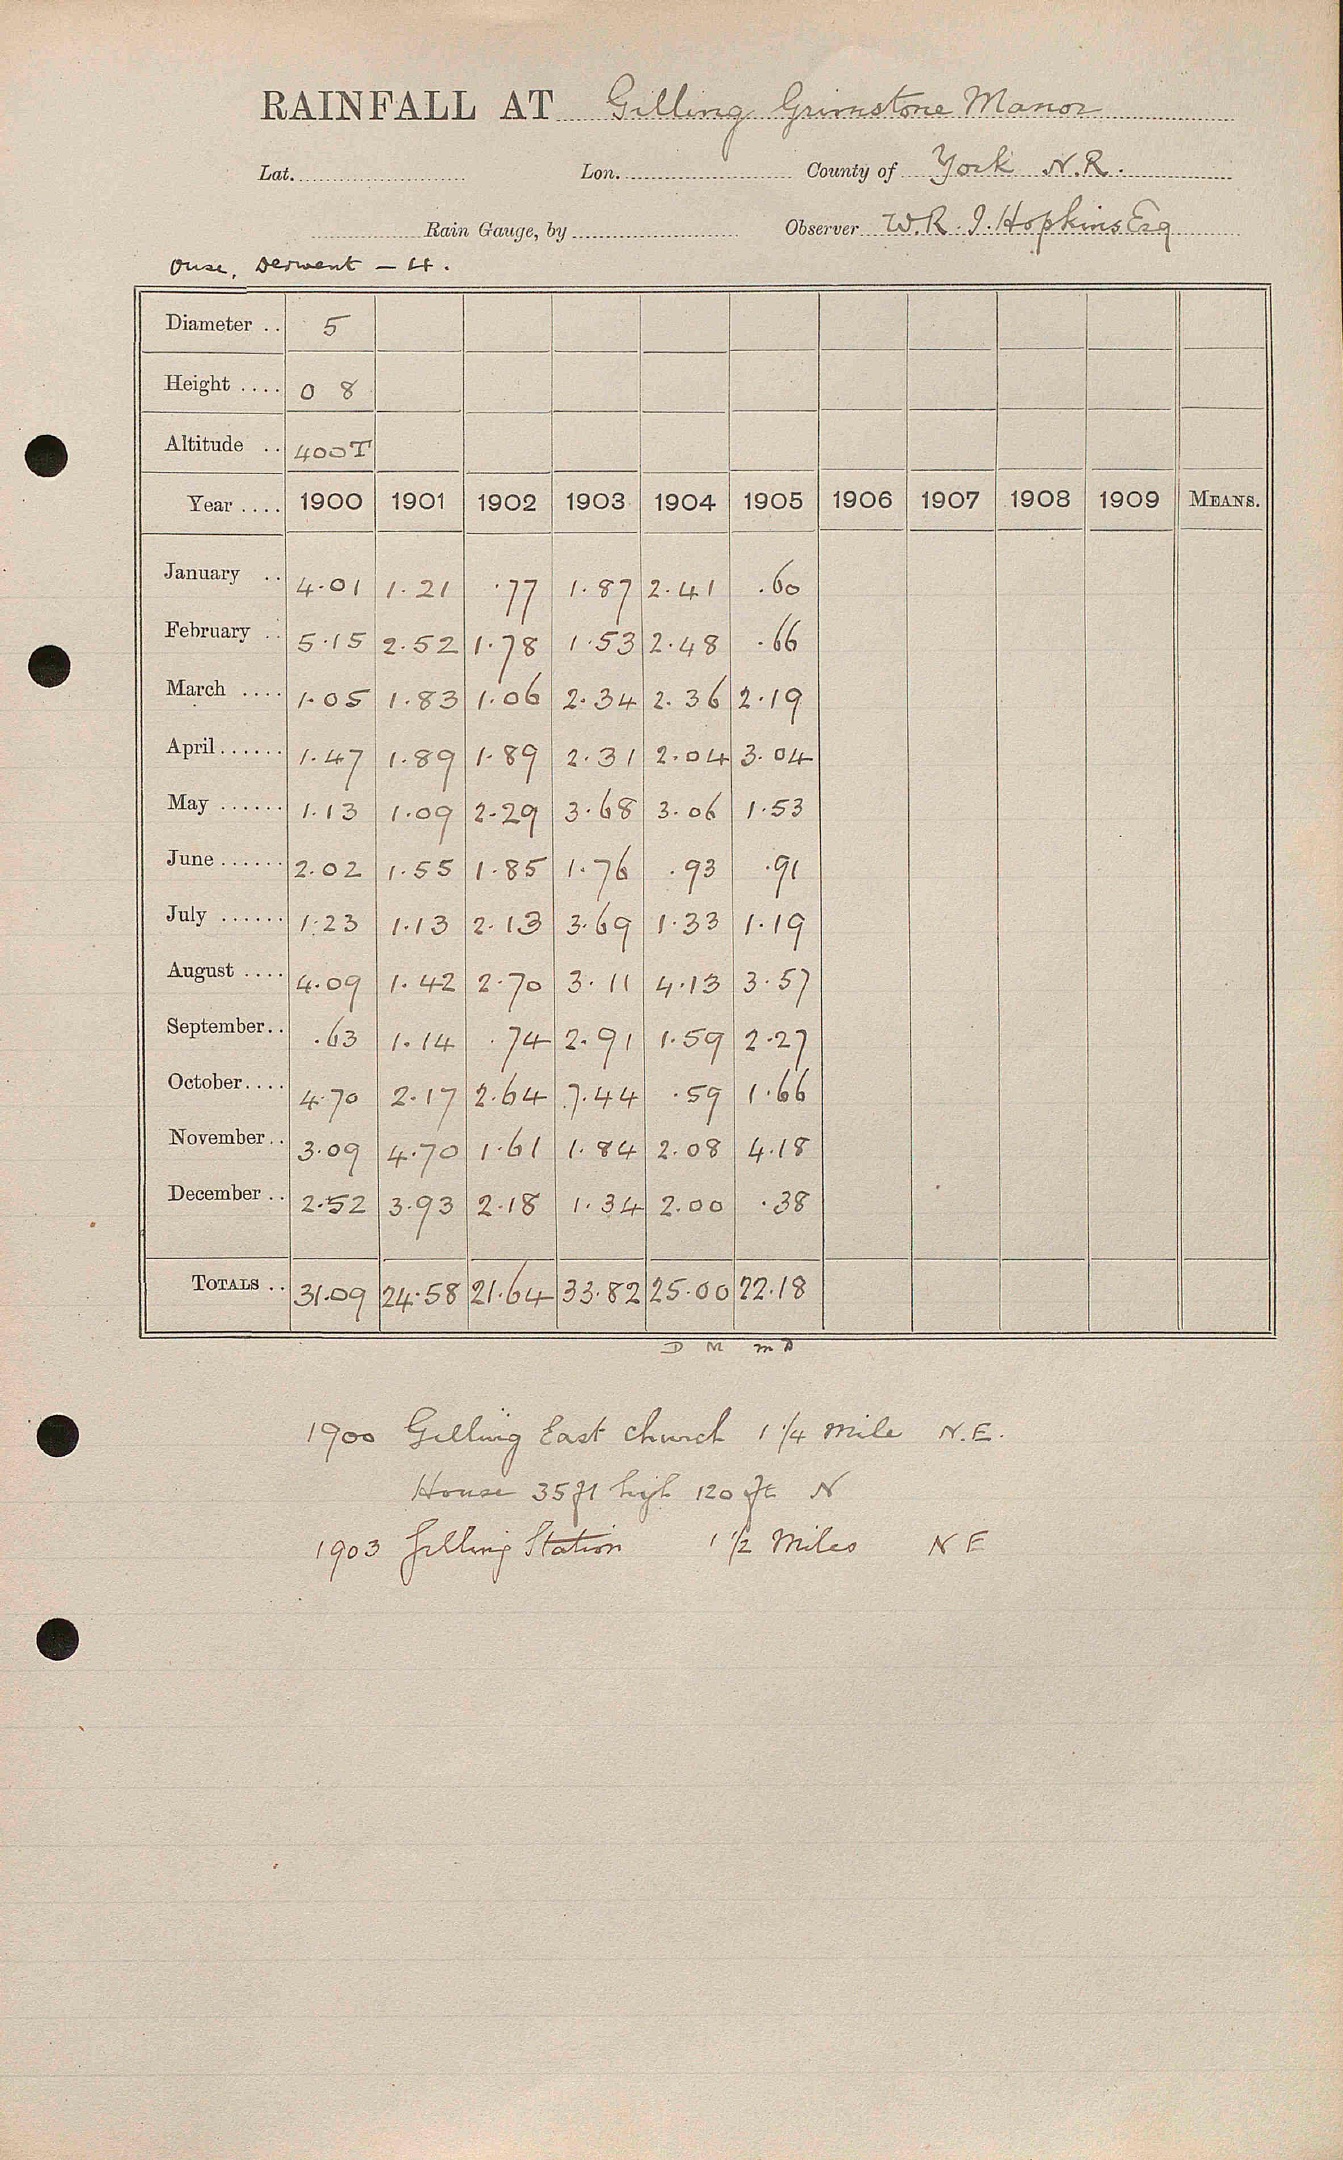 RAINFALL AT Gilling Grimstone Manor
Lat. Lon. County of York N.R.
Rain Gauge, by Observer W.R.I. Hopkins Esq
Ouse, Derwent – 4.
Diameter .. 5
Height .... 0 8
Altitude .. 400T
Year .... 1900 1901 1902 1903 1904 1905 1906 1907 1908 1909 MEANS.
January .. 4.01 1.21 .77 1.87 2.41 .60
February .. 5.15 2.52 1.78 1.53 2.48 .66
March .... 1.05 1.83 1.06 2.34 2.36 2.19
April ...... 1.47 1.89 1.89 2.31 2.04 3.04
May ...... 1.13 1.09 2.29 3.68 3.06 1.53
June ...... 2.02 1.55 1.85 1.76 .93 .91
July ...... 1.23 1.13 2.13 3.69 1.33 1.19
August .... 4.09 1.42 2.70 3.11 4.13 3.57
September.. .63 1.14 .74 2.91 1.59 2.27
October.... 4.70 2.17 2.64 7.44 .59 1.66
November.. 3.09 4.70 1.61 1.84 2.08 4.18
December .. 2.52 3.93 2.18 1.34 2.00 .38
TOTALS .. 31.09 24.58 21.64 33.82 25.00 22.18
D M m D
1900 Gilling East church 1 1/4 mile N.E.
House 35 ft high 120 ft N
1903 Gilling Station 1 1/2 Miles N E